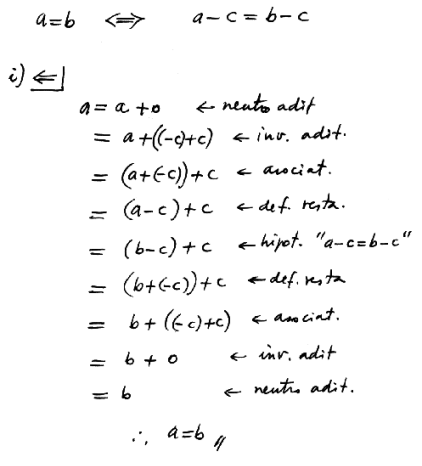 a=b ⟺ a-c=b-c
i) ⇐|
a = a+0 ← neutro adit
= a+((-c)+c) ← inv. adit.
= (a+(-c))+c ← asociat.
= (a-c)+c ← def. resta.
= (b-c)+c ← hipot. "a-c=b-c"
= (b+(-c))+c ← def. resta
= b+((-c)+c) ← asociat.
= b+0 ← inv. adit
= b ← neutro adit.
∴, a=b //